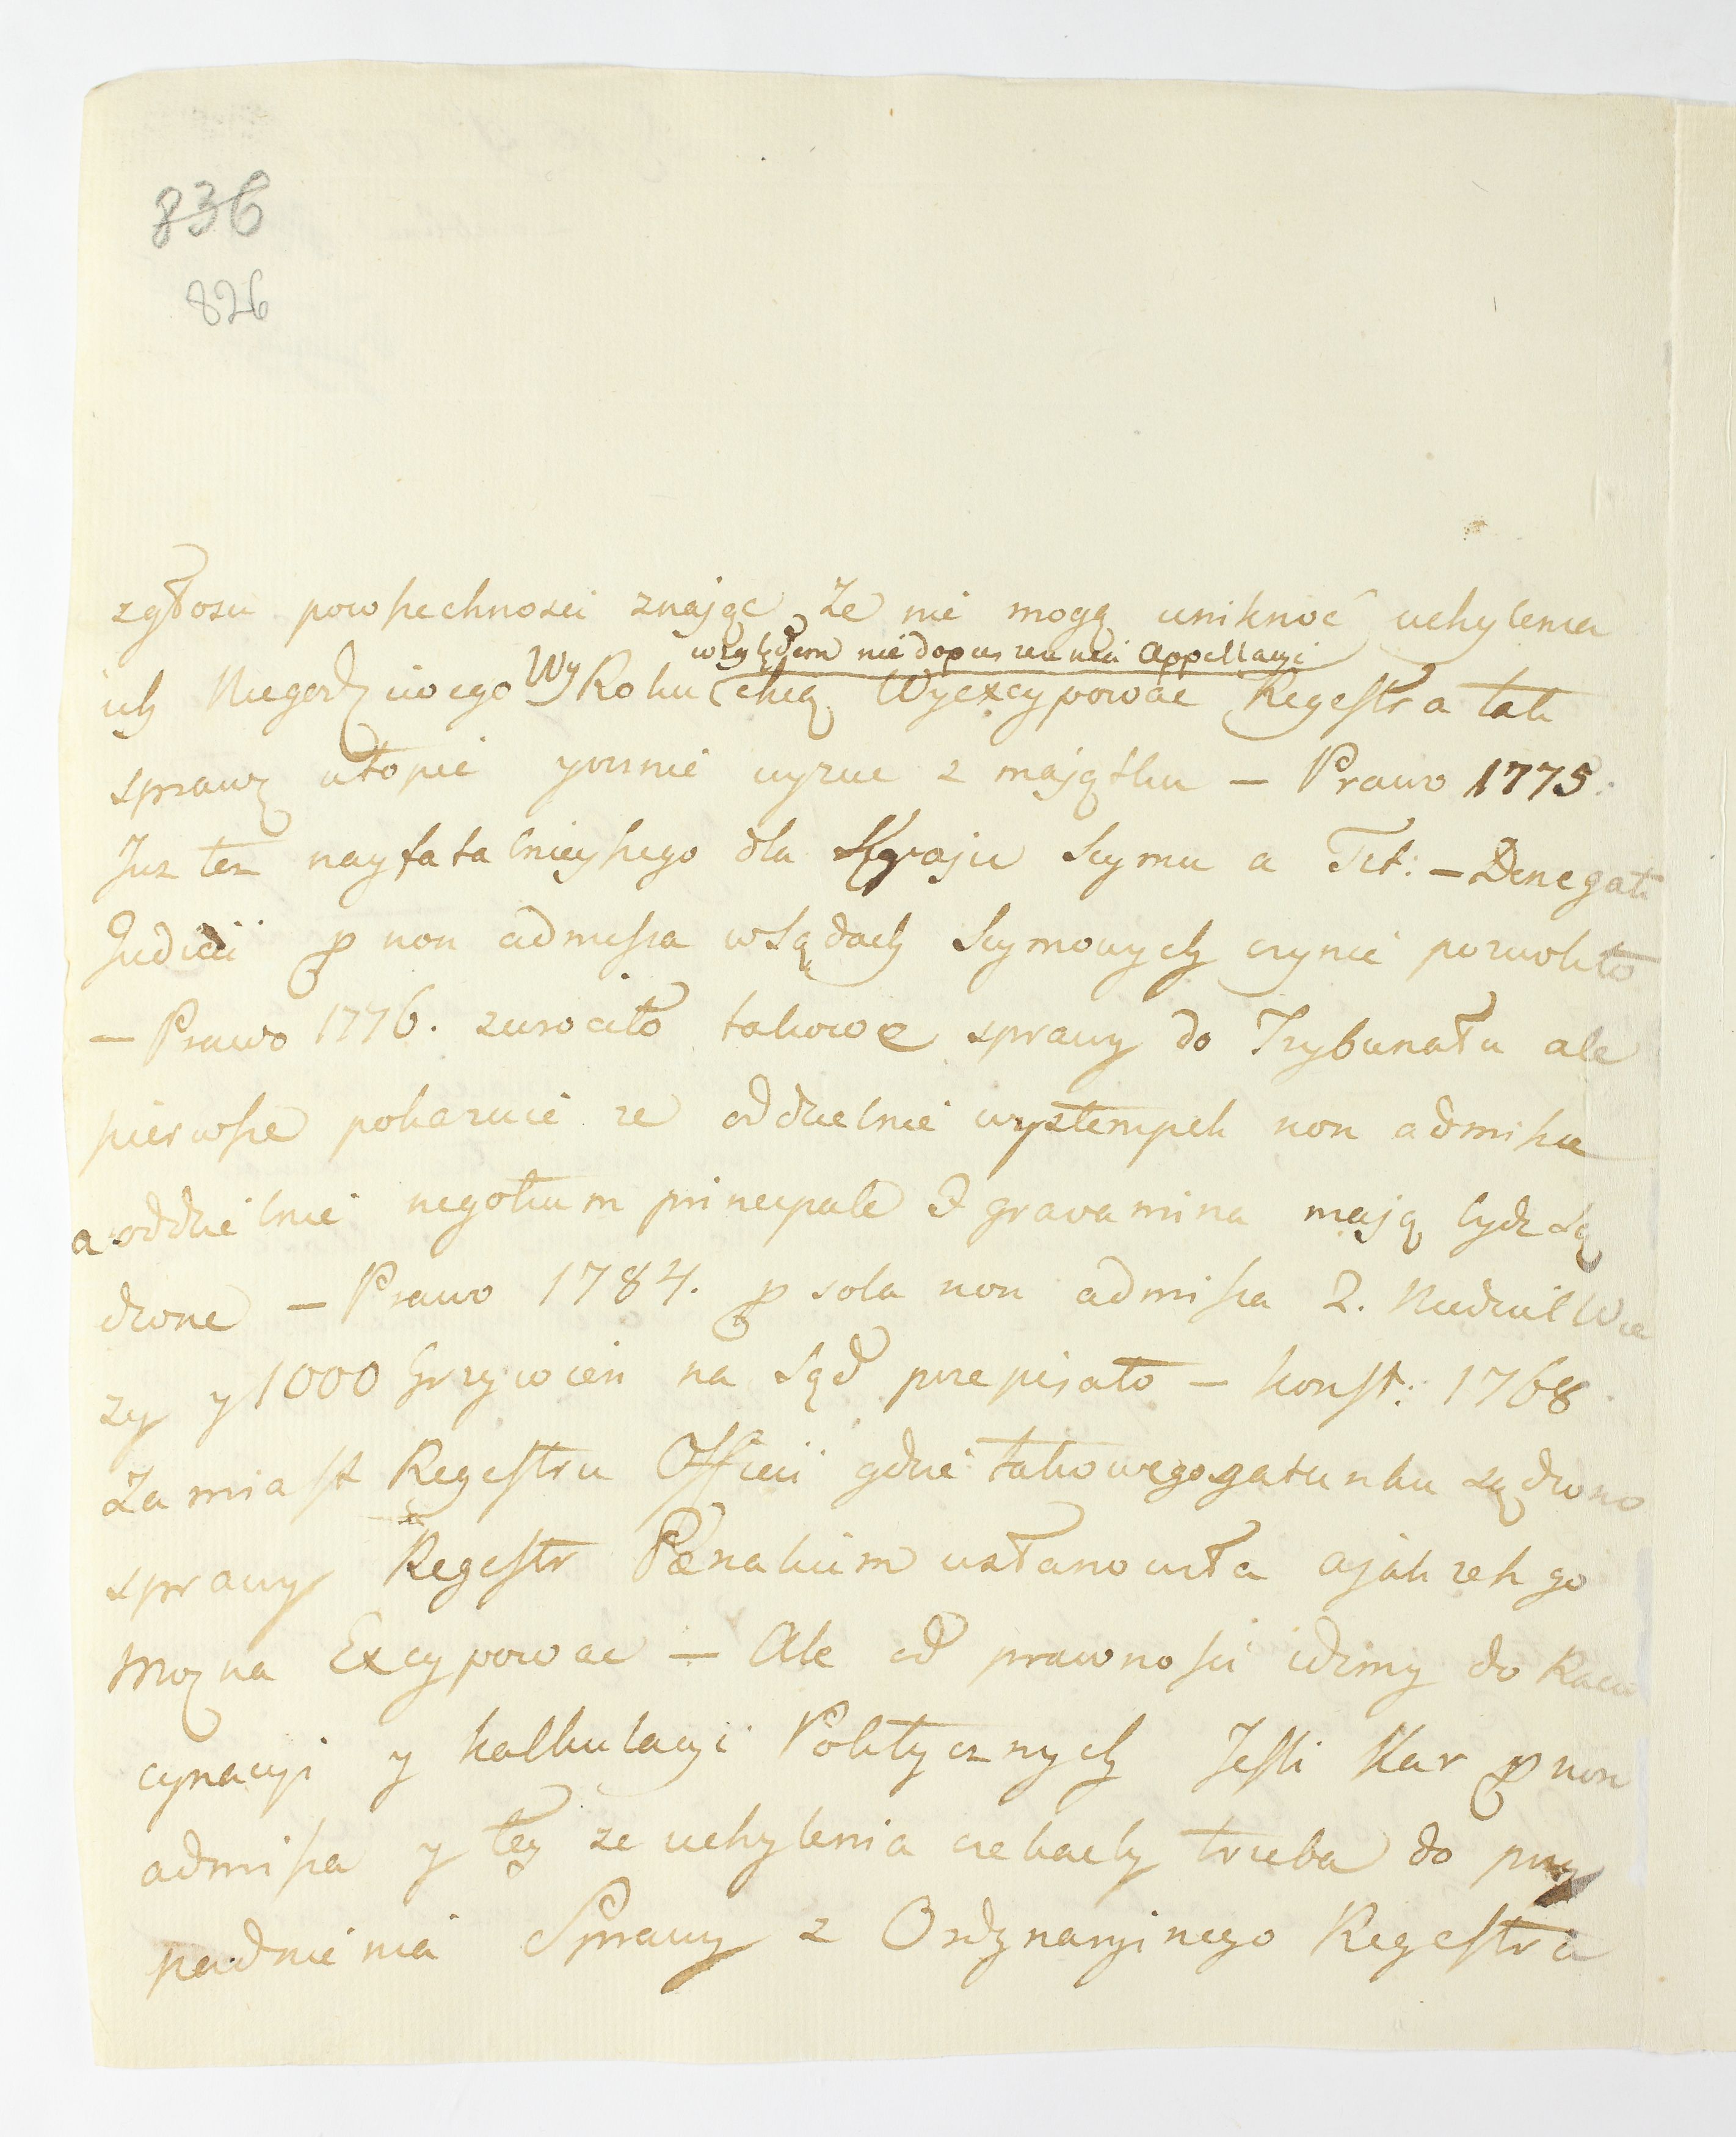 836
826
zgłosu powszechnosci znaiąc że nie mogą uniknoć uchylenia
względem niedopuszczenia Appellacyi
ich Niegodziwego WyRoku chcą Wyexcypowac Regestra tak
sprawę utopic y onnie wyzuc z maiątku — Prawo 1775.
Juz tez nayfatalnieyszego dla Kraju Seymu a Tit: — Denegati
Judicii p non admissa wsądach Seymowych czynic pozwoliło
— Prawo 1776. zwrociło takowe sprawy do Trybunału ale
pierwsze pokazuie ze oddzielnie występek non admissae
a oddzielnie negotium principale & gravamina maią bydz są
dzone — Prawo 1784. p sola non admissa 2. Niedziel Wie
zy y 1000 Grzywien na Sąd przepisało — konst: 1768
Zamiast Regestru Officii gdzie takowego gatunku sądzono
sprawy Regestr Pœnalium ustanowiła a jakzeh go
Mozna Excypowac — Ale od prawnosci idzimy do Racio
cynacyi y kalkulacyi Politycznych Jesli Kar p non
admissa y tey ze uchylenia czekach trzeba do przy
padnienia Sprawy z Ordynaryinego Regestra